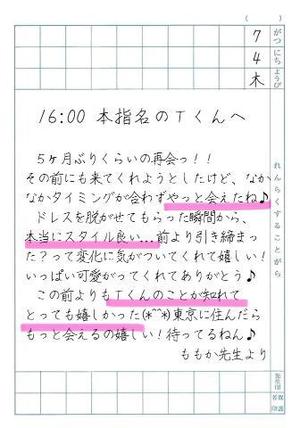 ( )
7 がつ
4 にち
木 ようび
れんらくすることがら
16:00 本指名のTくんへ
5ヶ月ぶりくらいの再会っ!!
その前にも来てくれようとしたけど、なか
なかタイミングが合わずやっと会えたね♪
ドレスを脱がせてもらった瞬間から、
本当にスタイル良い...前より引き締まっ
た?って変化に気がついてくれて嬉しい!
いっぱい可愛がってくれてありがとう♪
この前よりもTくんのことが知れて
とっても嬉しかった(*^^*)東京に住んだら
もっと会えるの嬉しい!待ってるねん♪
ももか先生より